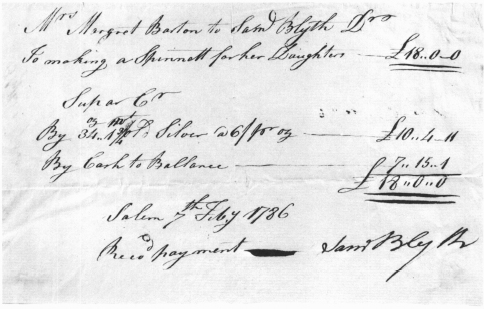 Mrs Margret Barton to Samd Blyth Dro
To making a Spinnett for her Daughters — £18..0-0
Supar Cr
By 34..1 Silver @ 6/ pr oz — £10..4-11
By Cash to Ballance — 7..15..1
£18..0..0
Salem 7th Feby 1786
Recd payment — Saml Blyth